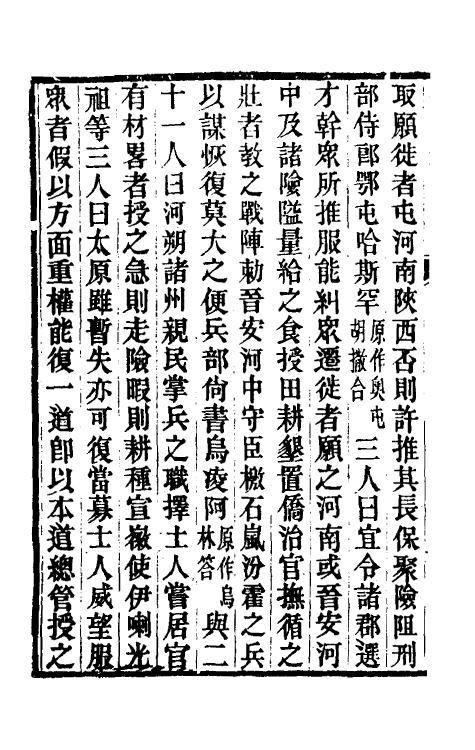 取願徙者屯河南陝西否則許推其長保聚險阻刑
部侍郎鄂屯哈斯罕原作奥屯胡撒合三人曰宜令諸郡選
才幹衆所推服能糾衆遷徙者願之河南或晉安河
中及諸險隘量給之食授田耕墾置僑治官撫循之
壯者教之戰陣勅晉安河中守臣檄石嵐汾霍之兵
以謀恢復莫大之便兵部尙書烏凌阿原作烏林答與二
十一人曰河朔諸州親民掌兵之職擇士人嘗居官
有材畧者授之急則走險暇則耕種宣徽使伊喇光
祖等三人曰太原雖暫失亦可復當募士人威望服
衆者假以方面重權能復一道卽以本道總管授之